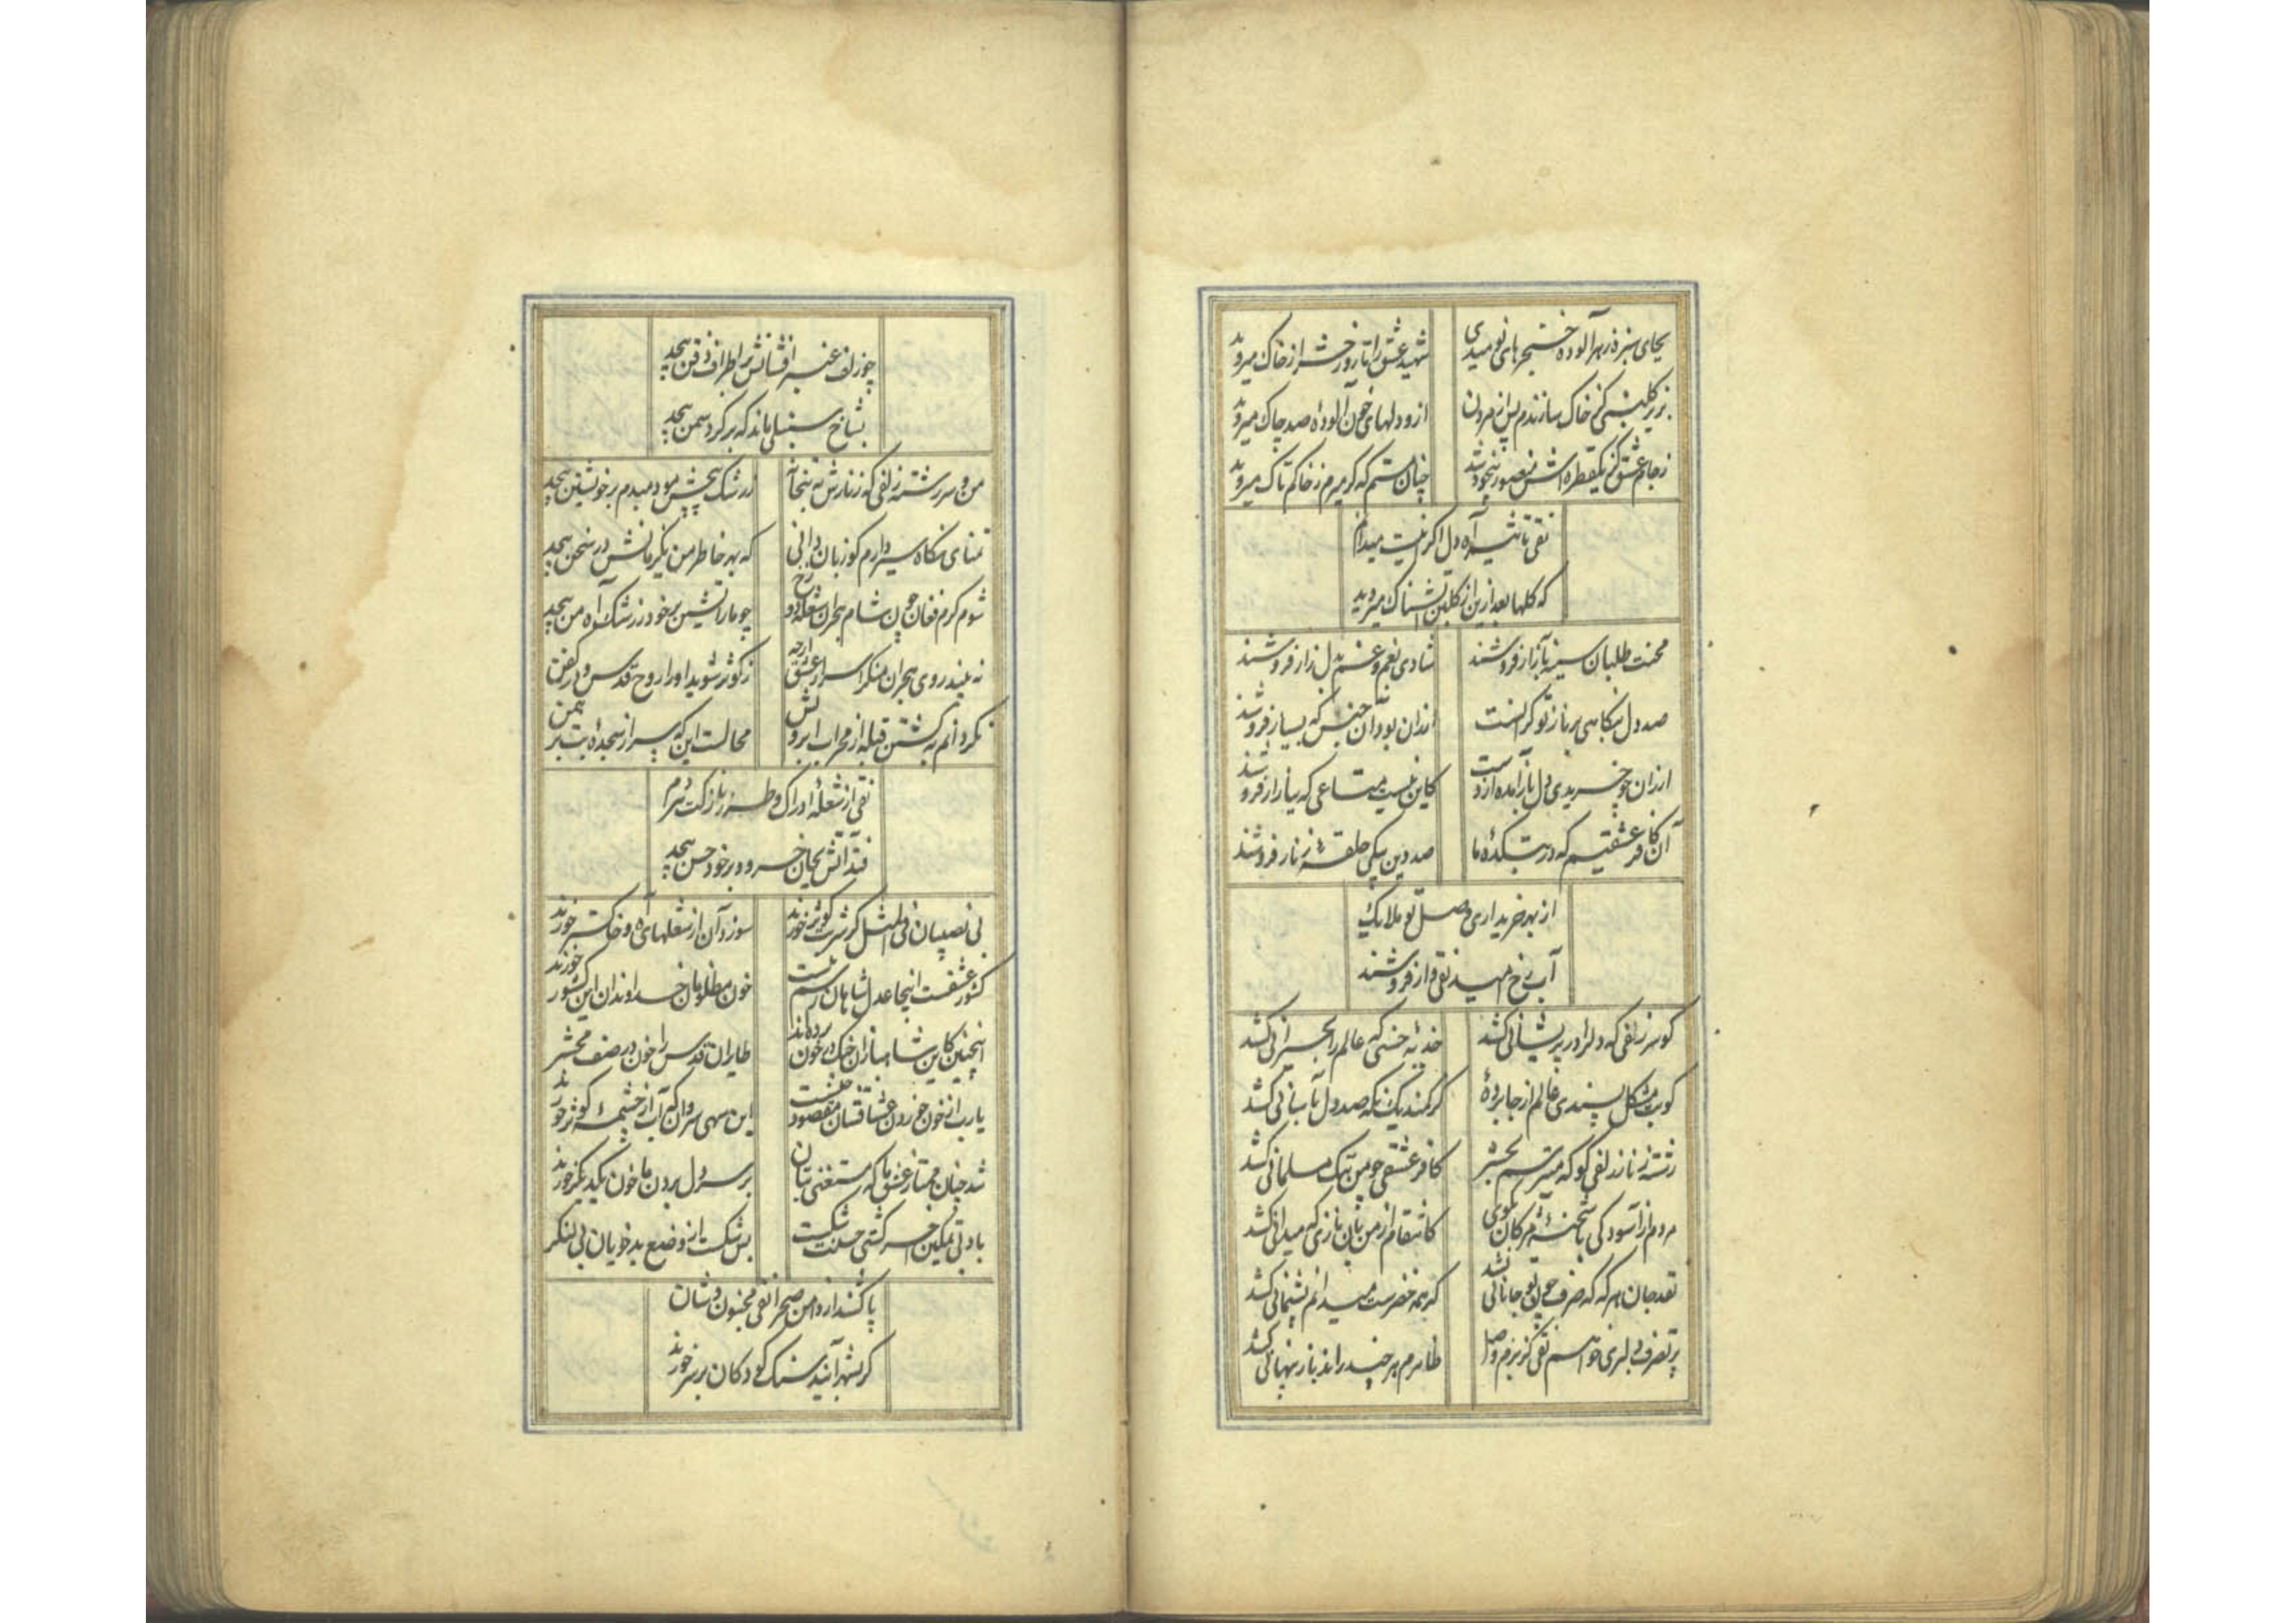 بجای سبزه زهرآلوده خنجرهای نومیدی
شهید عشق را تا روز حشر از خاک میروید
بزیر گلبنی کز خاک سازندم پس از مردن
ازو دلهای خون آلودهٔ صد چاک میروید
ز جام عشق کز یکقطره اش منصور بیخود شد
چنان مستم که گر میرم ز خاکم تاک میروید
نقی تاثیر آه دل اگر اینست میدانم
که گلها بعد ازین از گلبن آتشناک میروید
محنت طلبان سینه بآزار فروشند
شادی بغم و غم بدل زار فروشند
صد دل بنگاهی بر ناز تو گرانست
ارزان بود آن جنس که بسیار فروشند
ارزان چو خریدی دل بازآمده ازدست
کاین نیست متاعی که ببازار فروشند
آن کافر عشقیم که در بتکدهٔ ما
صد دین بیکی حلقهٔ زنار فروشند
از بهر خریداری وصل تو ملایک
آب رخ امید نقی وار فروشند
کو سر زلفی که دلرا در پریشانی کشد
جذبهٔ حسنی که عالم را بحیرانی کشد
کو بت مشکل پسندی عالم از جا بردهٔ
گر کمند یک نگه صد دل بآسانی کشد
رشتهٔ زنار زلفی کو که میترسم بحشر
کافر عشقی چو من ننگ مسلمانی کشد
مردم از آسودگی با شحنهٔ مژگان بگوی
کانتقام از من بآن نازی که میدانی کشد
نقد جان هر که که صرف چون تو جانانی نشد
گر همه خضرست میدانم پشیمانی کشد
پر تصرف دلبری خواهم نقی کز بزم وصل
ظاهرم هر چند راند باز پنهانی کشد
چو زلف عنبر افشانش بر اطراف ذقن پیچد
بشاخ سنبلی ماند که بر گرد سمن پیچد
من و سررشتهٔ زلفی که زنارش به بتخانه
ز رشک پیچش مو دمبدم بر خویشتن پیچد
تمنای نگاه سیر دارم کو زبان دانی
که بهر خاطر من یک زمانش در سخن پیچد
شوم گرم فغان چون شام هجران شعله دوزخ
چو مار آتشین بر خود ز رشک آه من پیچد
نه بیند روی هجران منکر اسرار عشق ارچه
ز کوثر شوید او را روح قدس و در کفن
نگردانم به کشتن قبله از محراب ابرویش
محالست این که سر از سجدهٔ بت برهمن
نقی از شعلهٔ ادراک و طرز نازکت ترسم
فتد آتش بجان خسرو و بر خود حسن پیچد
بی نصیبان فی المثل گر شربت کوثر خورند
سوزد آن از شعلهای آه و خاکستر خورند
کشور عشقست اینجا عدل شاهان رسم نیست
خون مظلومان خداوندان این کشور خورند
اینچنین کاین شاهبازان چنگ در خون برده اند
طایران قدس را خون در صف محشر
یارب از خون خوردن عشاقشان مقصود چیست
این سهی سروان که آب از چشمهٔ کوثر خورند
شد چنان ممتاز عشق ما که مستغنی بتان
بر سر دل بردن ما خون یکدیگر خورند
باد بی تمکین آخر کشتی حسنت شکست
بس شکست از وضع بد خویان بی لنگر
پا کشند از دامن صحرا نقی مجنون وشان
گر بشهر آیند سنگ کودکان بر سر خورند